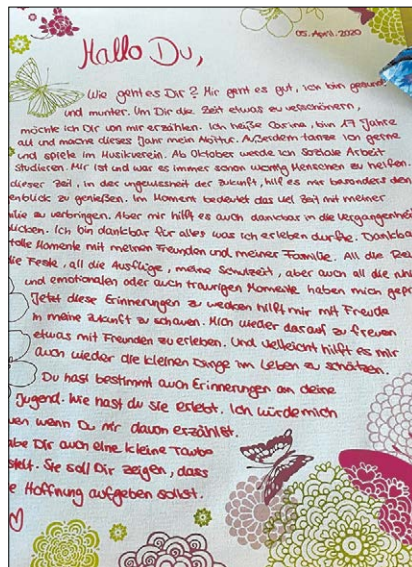 05. April. 2020
Hallo Du,
Wie geht es Dir? Mir geht es gut, ich bin gesund
und munter. Um Dir die Zeit etwas zu verschönern,
möchte ich Dir von mir erzählen. Ich heiße Carina, bin 17 Jahre
alt und mache dieses Jahr mein Abitur. Außerdem tanze ich gerne
und spiele im Musikverein. Ab Oktober werde ich Soziale Arbeit
studieren. Mir ist und war es immer schon wichtig Menschen zu helfen.
dieser Zeit, in der ungewissheit der Zukunft, hilf es mir besonders den
enblick zu genießen. Im Moment bedeutet das viel Zeit mit meiner
ilie zu verbringen. Aber mir hilft es auch dankbar in die Vergangenheit
licken. Ich bin dankbar für alles was ich erleben durfte. Dankbar
tolle Momente mit meinen Freunden und meiner Familie. All die Rei
ie Feste, all die Ausflüge, meine Schulzeit, aber auch all die
und emotionalen oder auch traurigen Momente haben mich gepr
Jetzt diese Erinnerungen zu wecken hilft mir mit Freude
in meine Zukunft zu schauen. Mich wieder darauf zu freuen
etwas mit Freunden zu erleben. Und vielleicht hilft es mir
auch wieder die kleinen Dinge im Leben zu schätzen.
Du hast bestimmt auch Erinnerungen an deine
Jugend. Wie hast du sie erlebt. Ich würde mich
uen wenn Du mir davon erzählst.
abe Dir auch eine kleine Taube
stelt. Sie soll Dir zeigen, dass
e Hoffnung aufgeben sollst.